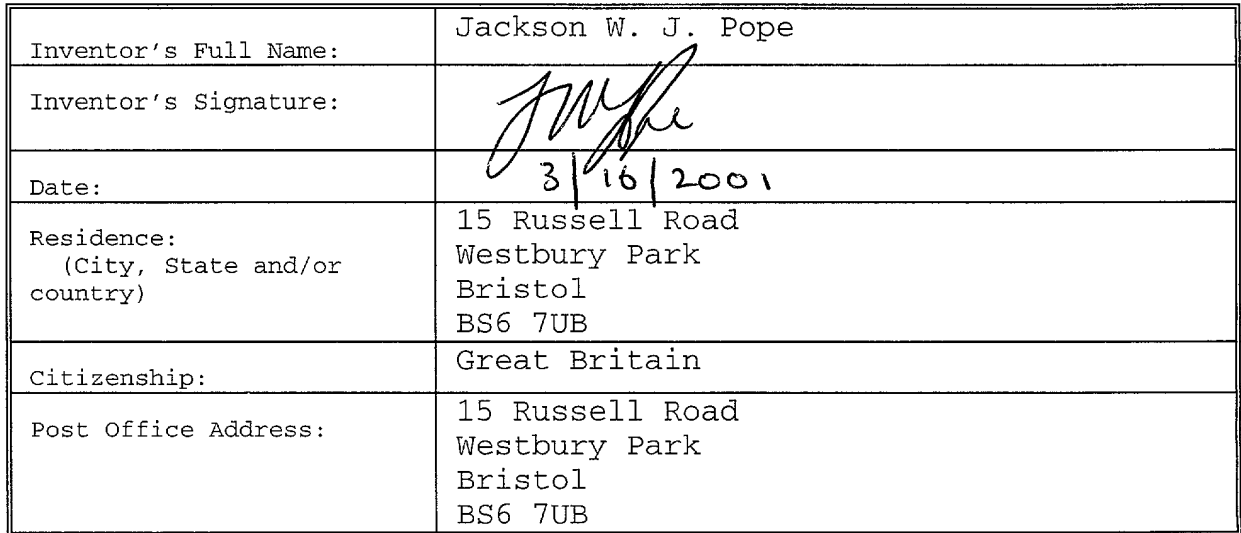 Inventor's Full Name: Jackson W. J. Pope
Inventor's Signature:
Date: 3/16/2001
Residence:
(City, State and/or
country)
15 Russell Road
Westbury Park
Bristol
BS6 7UB
Citizenship: Great Britain
Post Office Address:
15 Russell Road
Westbury Park
Bristol
BS6 7UB